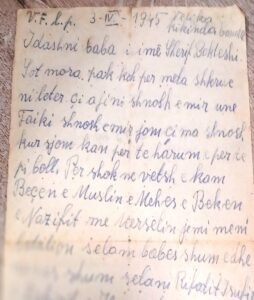 V.F. l.p. 3-IV-1945 Velika
Kikinda banat
Idashni baba i imē Sherif Bokteshi
Sot mora pak koh per meta shkrue
ni leter qi ajini shnosh emir une
Faiki shnosh emir jom ça mo shnosh
kur sjom kan per te harum e per te
pi bolli Per shok ne vetsh e kam
Beçen e Muslin e Mehes e Beken
e Nazifit me Verselin jemi meni
selam babes shum edhe
shum selam Rifatit Isufit